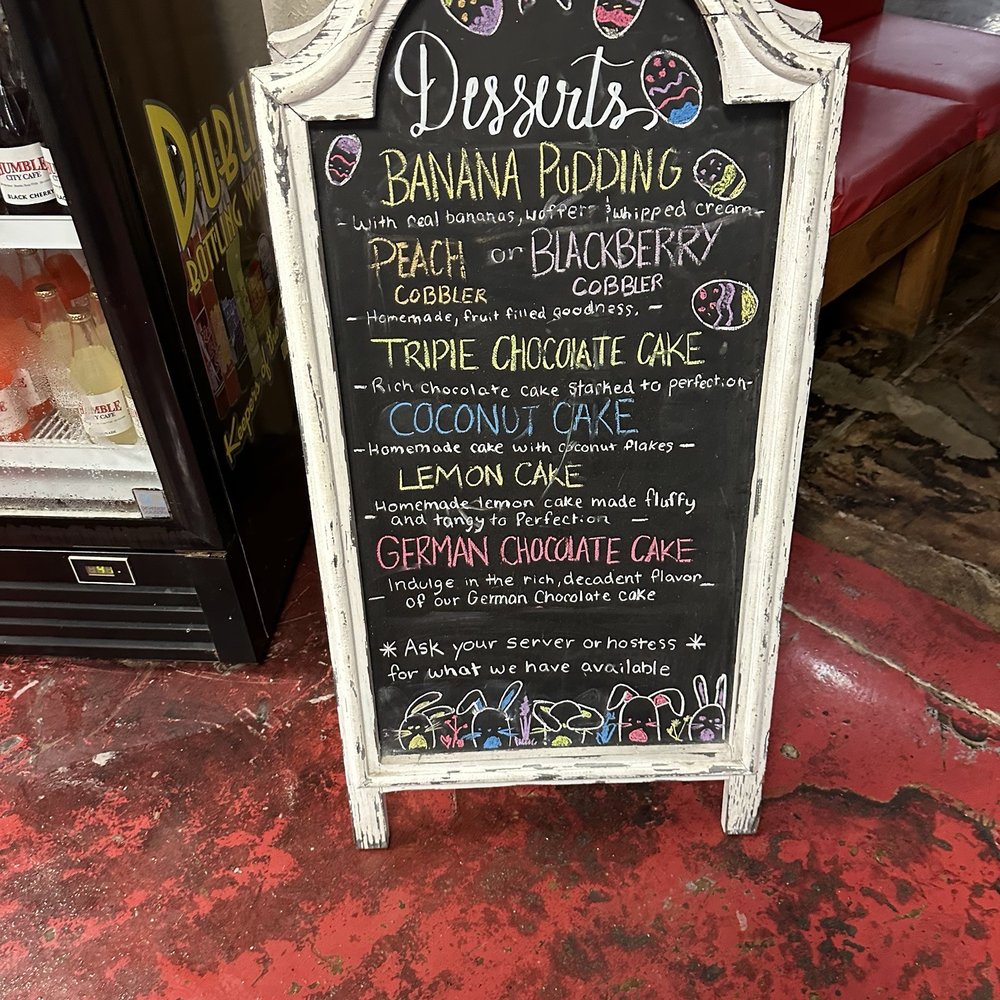 Desserts
BANANA PUDDING
- With real bananas, waffers & whipped cream -
PEACH or BLACKBERRY
COBBLER COBBLER
- Homemade, fruit filled goodness. -
TRIPLE CHOCOLATE CAKE
- Rich chocolate cake stacked to perfection -
COCONUT CAKE
- Homemade cake with coconut flakes -
LEMON CAKE
- Homemade lemon cake made fluffy
and tangy to Perfection -
GERMAN CHOCOLATE CAKE
- Indulge in the rich, decadent flavor -
of our German Chocolate cake
* Ask your server or hostess *
for what we have available
HUMBLE
CITY CAFE
BLACK CHERRY
DUBL
BOTTLING WO
HUMBLE
CITY CAFE